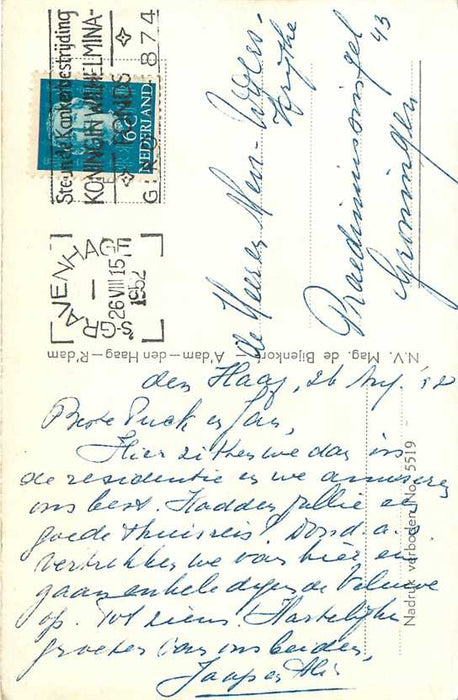 Steunt de Kankerbestrijding
KONINGIN WILHELMINA-
FONDS
GIRO 26000 874
6c
NEDERLAND
'S-GRAVENHAGE
26 VIII 15
1952
de Heer en Mevr.
Praedinius singel 43
Groningen
N.V. Mag. de Bijenkorf A'dam—den Haag—R'dam
Nadruk verboden No. 5519
den Haag, 26 Aug. '52
Beste Puck en Jan,
Hier zitten we dan in
de residentie en we amuseren
ons best. Hadden jullie een
goede thuisreis? Dond. a.s.
vertrekken we van hier en
gaan enkele dagen de Veluwe
op. Tot ziens. Hartelijke
groeten van ons beiden,
Jaap en